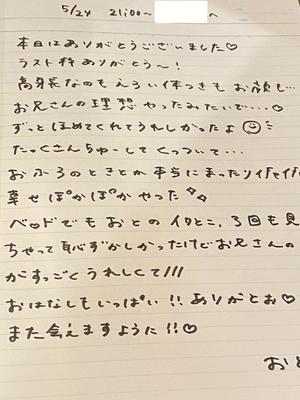 5/24 21:00〜 へ
本日はありがとうございました♡
ラスト枠ありがとう〜!
高身長なのもえろい体つきもお顔も…
お兄さんの理想やったみたいで…♡
ずっとほめてくれてうれしかったよ
たっくさんちゅーしてくっついて…
おふろのときとか本当にまったりイイ
幸せぽかぽかやった
ベッドでもおとのイクとこ、3回も見
ちゃって恥ずかしかったけどお兄さんの
がすっごくうれしくて///
おはなしもいっぱい!!ありがとお♡
また会えますように!!♡
おと